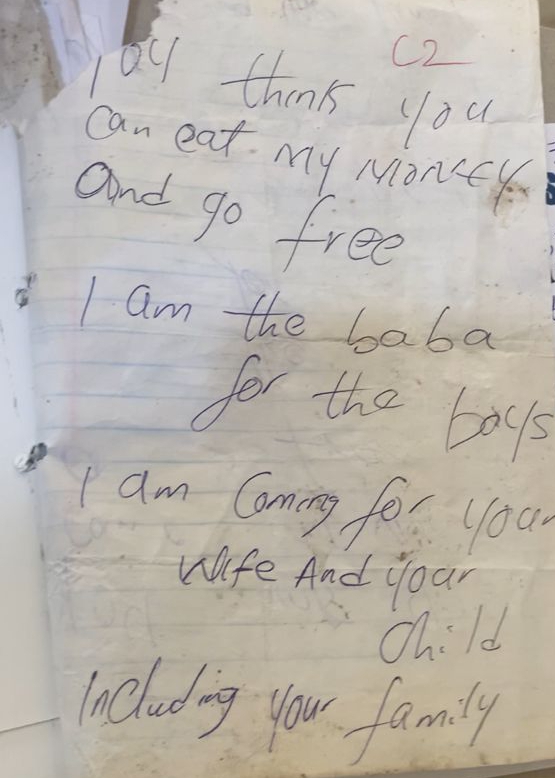 C2
you think you
Can eat my MONEY
And go free
I am the baba
for the boys
I am Coming for your
Wife And your
Child
Including your family